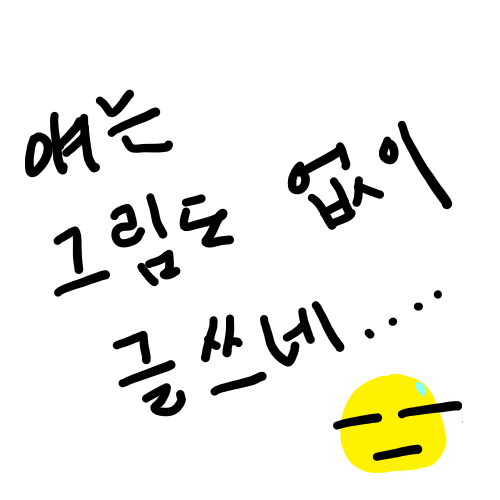 얘는
그림도 없이
글쓰네....